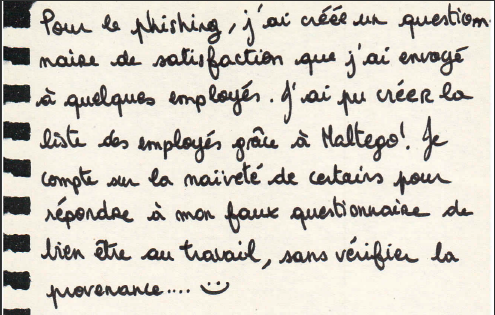 Pour le phishing, j'ai créée un question-
naire de satisfaction que j'ai envoyé
à quelques employés. J'ai pu créer la
liste des employés grâce à Maltego! Je
compte sur la naïveté de certains pour
répondre à mon faux questionnaire de
bien être au travail, sans vérifier la
provenance.... :)